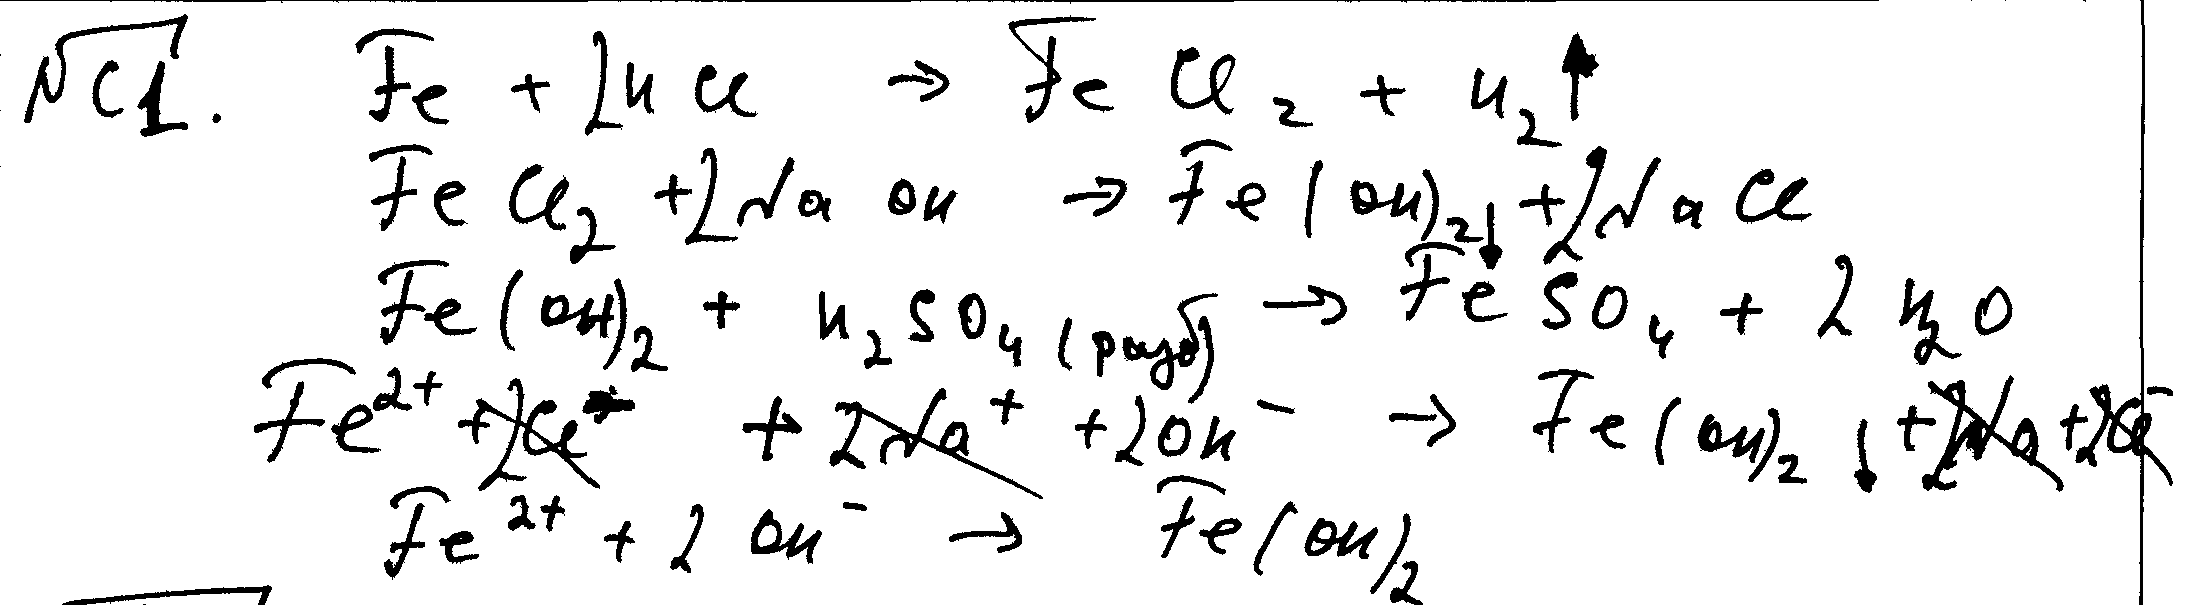 №C1. Fe + 2HCl → FeCl₂ + H₂↑
FeCl₂ + 2NaOH → Fe(OH)₂↓ + 2NaCl
Fe(OH)₂ + H₂SO₄ (разб) → FeSO₄ + 2H₂O
Fe²⁺ + 2Cl⁻ + 2Na⁺ + 2OH⁻ → Fe(OH)₂↓ + 2Na + 2Cl⁻
Fe²⁺ + 2OH⁻ → Fe(OH)₂